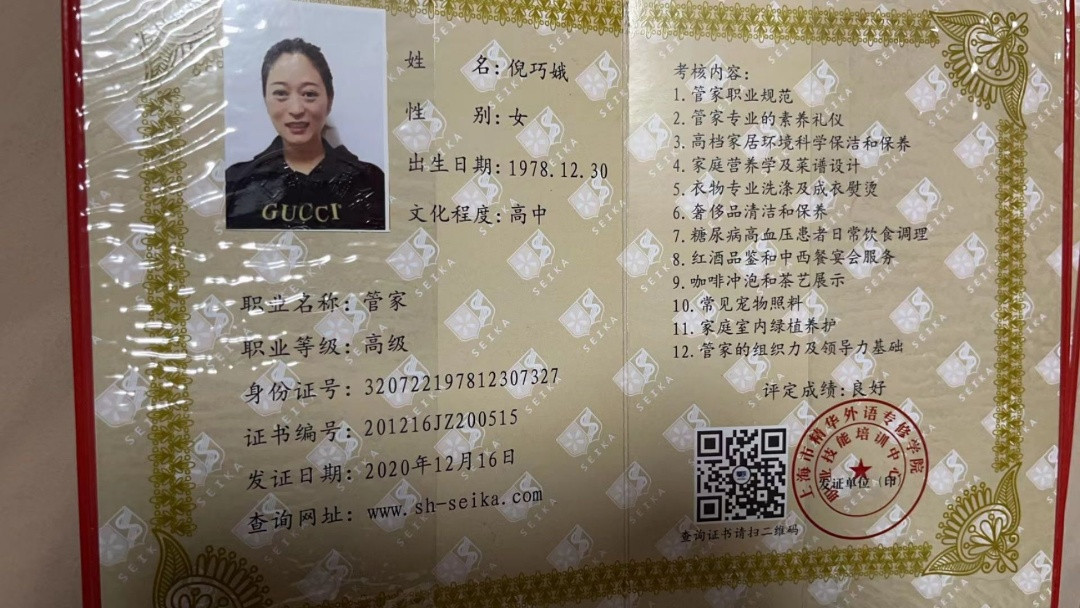 GUCCI
姓 名：倪巧娥
性 别：女
出生日期：1978.12.30
文化程度：高中
职业名称：管家
职业等级：高级
身份证号：320722197812307327
证书编号：201216JZ200515
发证日期：2020年12月16日
查询网址：www.sh-seika.com
考核内容：
1. 管家职业规范
2. 管家专业的素养礼仪
3. 高档家居环境科学保洁和保养
4. 家庭营养学及菜谱设计
5. 衣物专业洗涤及成衣熨烫
6. 奢侈品清洁和保养
7. 糖尿病高血压患者日常饮食调理
8. 红酒品鉴和中西餐宴会服务
9. 咖啡冲泡和茶艺展示
10. 常见宠物照料
11. 家庭室内绿植养护
12. 管家的组织力及领导力基础
评定成绩：良好
上海市精华外语专修学院
职业技能培训中心
发证单位（印）
查询证书请扫二维码
SEIKA